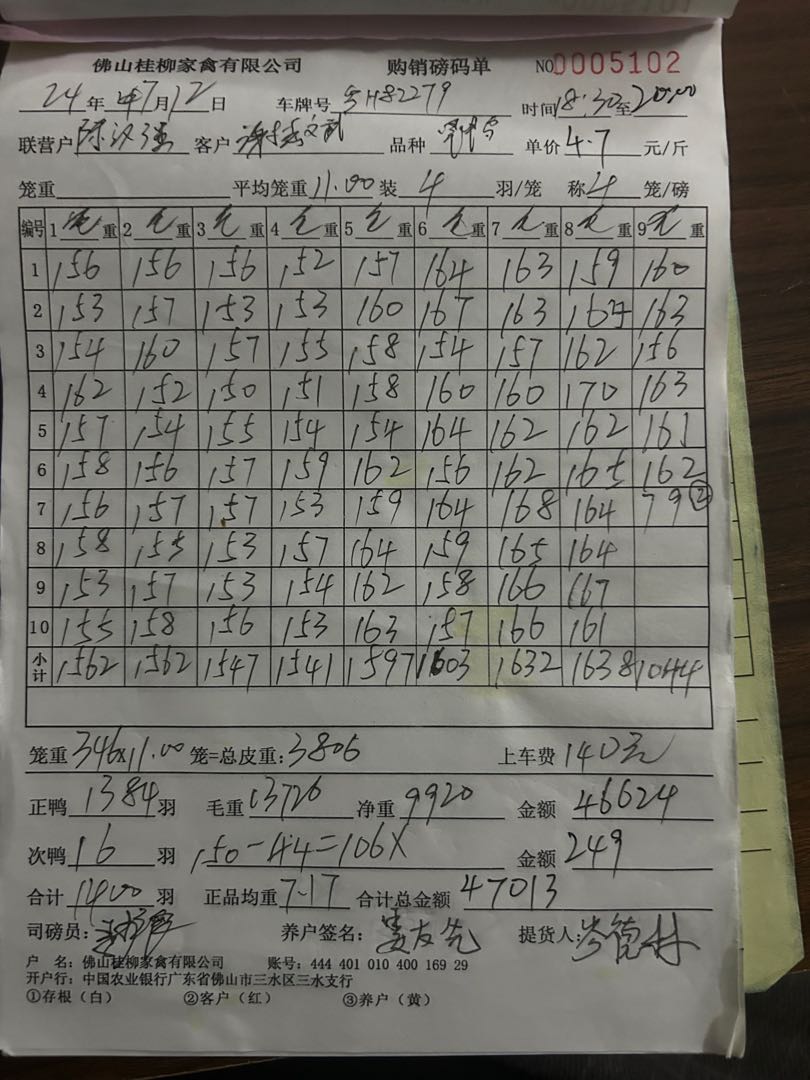 佛山桂柳家禽有限公司 购销磅码单 NO0005102
24年7月12日 车牌号 粤H82279 时间18:30至20:00
联营户 陈汉强 客户 品种 单价4.7元/斤
笼重 平均笼重11.00装4羽/笼 称4笼/磅
编号 1毛重 2毛重 3毛重 4毛重 5毛重 6毛重 7毛重 8毛重 9毛重
1 156 156 156 152 157 164 163 159 160
2 153 157 153 153 160 167 163 163
3 154 160 157 155 158 154 157 162 156
4 162 152 150 151 158 160 160 170 163
5 157 154 155 154 154 164 162 162 161
6 158 156 157 159 162 156 162 165 162
7 156 157 157 153 159 164 168 164 79②
8 158 155 153 157 164 159 165 164
9 153 157 153 154 162 158 166 167
10 155 158 156 153 163 157 166 161
小计 1562 1562 1547 1541 1597 1603 1632 1638 1044
笼重346x11.00笼=总皮重:3806 上车费140元
正鸭1384羽 毛重13726 净重9920 金额46624
次鸭16羽 150-44=106X 金额249
合计1400羽 正品均重7.17 合计总金额47013
司磅员: 养户签名: 提货人:
户 名:佛山桂柳家禽有限公司 账号:444 401 010 400 169 29
开户行:中国农业银行广东省佛山市三水区三水支行
①存根(白) ②客户(红) ③养户(黄)